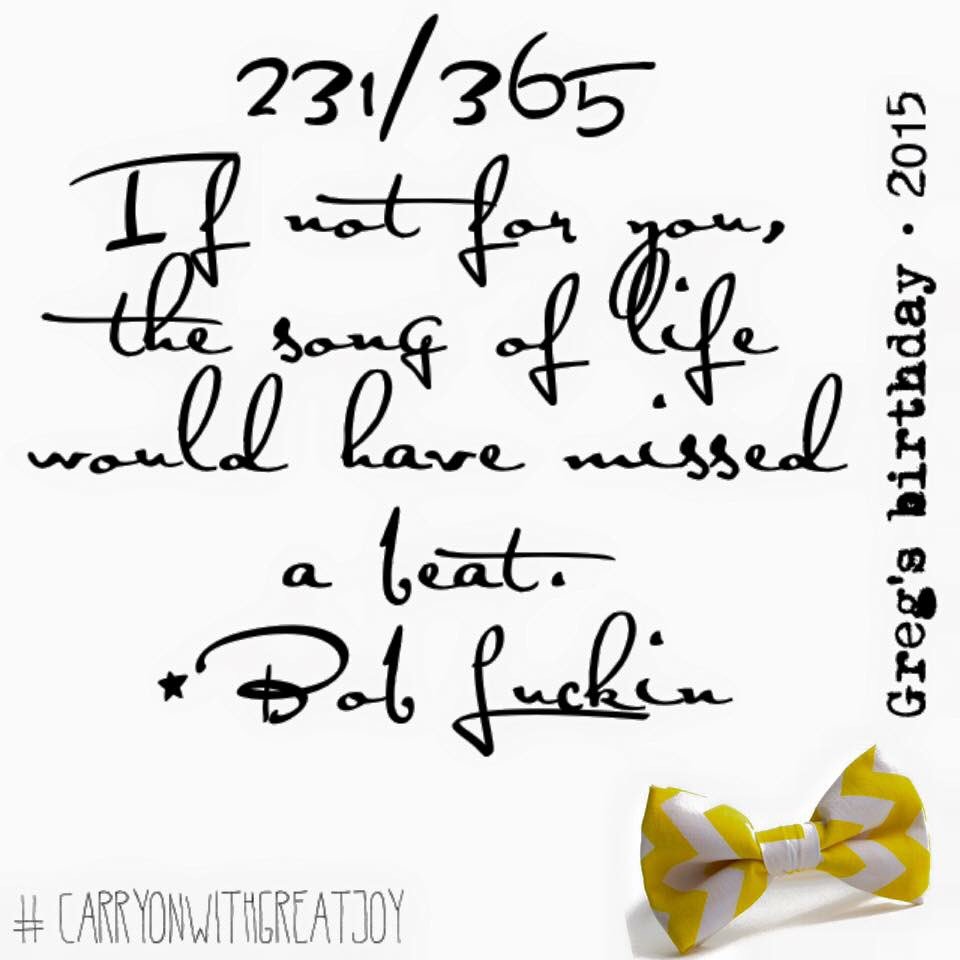 231/365
If not for you,
the song of life
would have missed
a beat.
★Bob Luckin
Greg's birthday · 2015
# CARRYONWITHGREATJOY